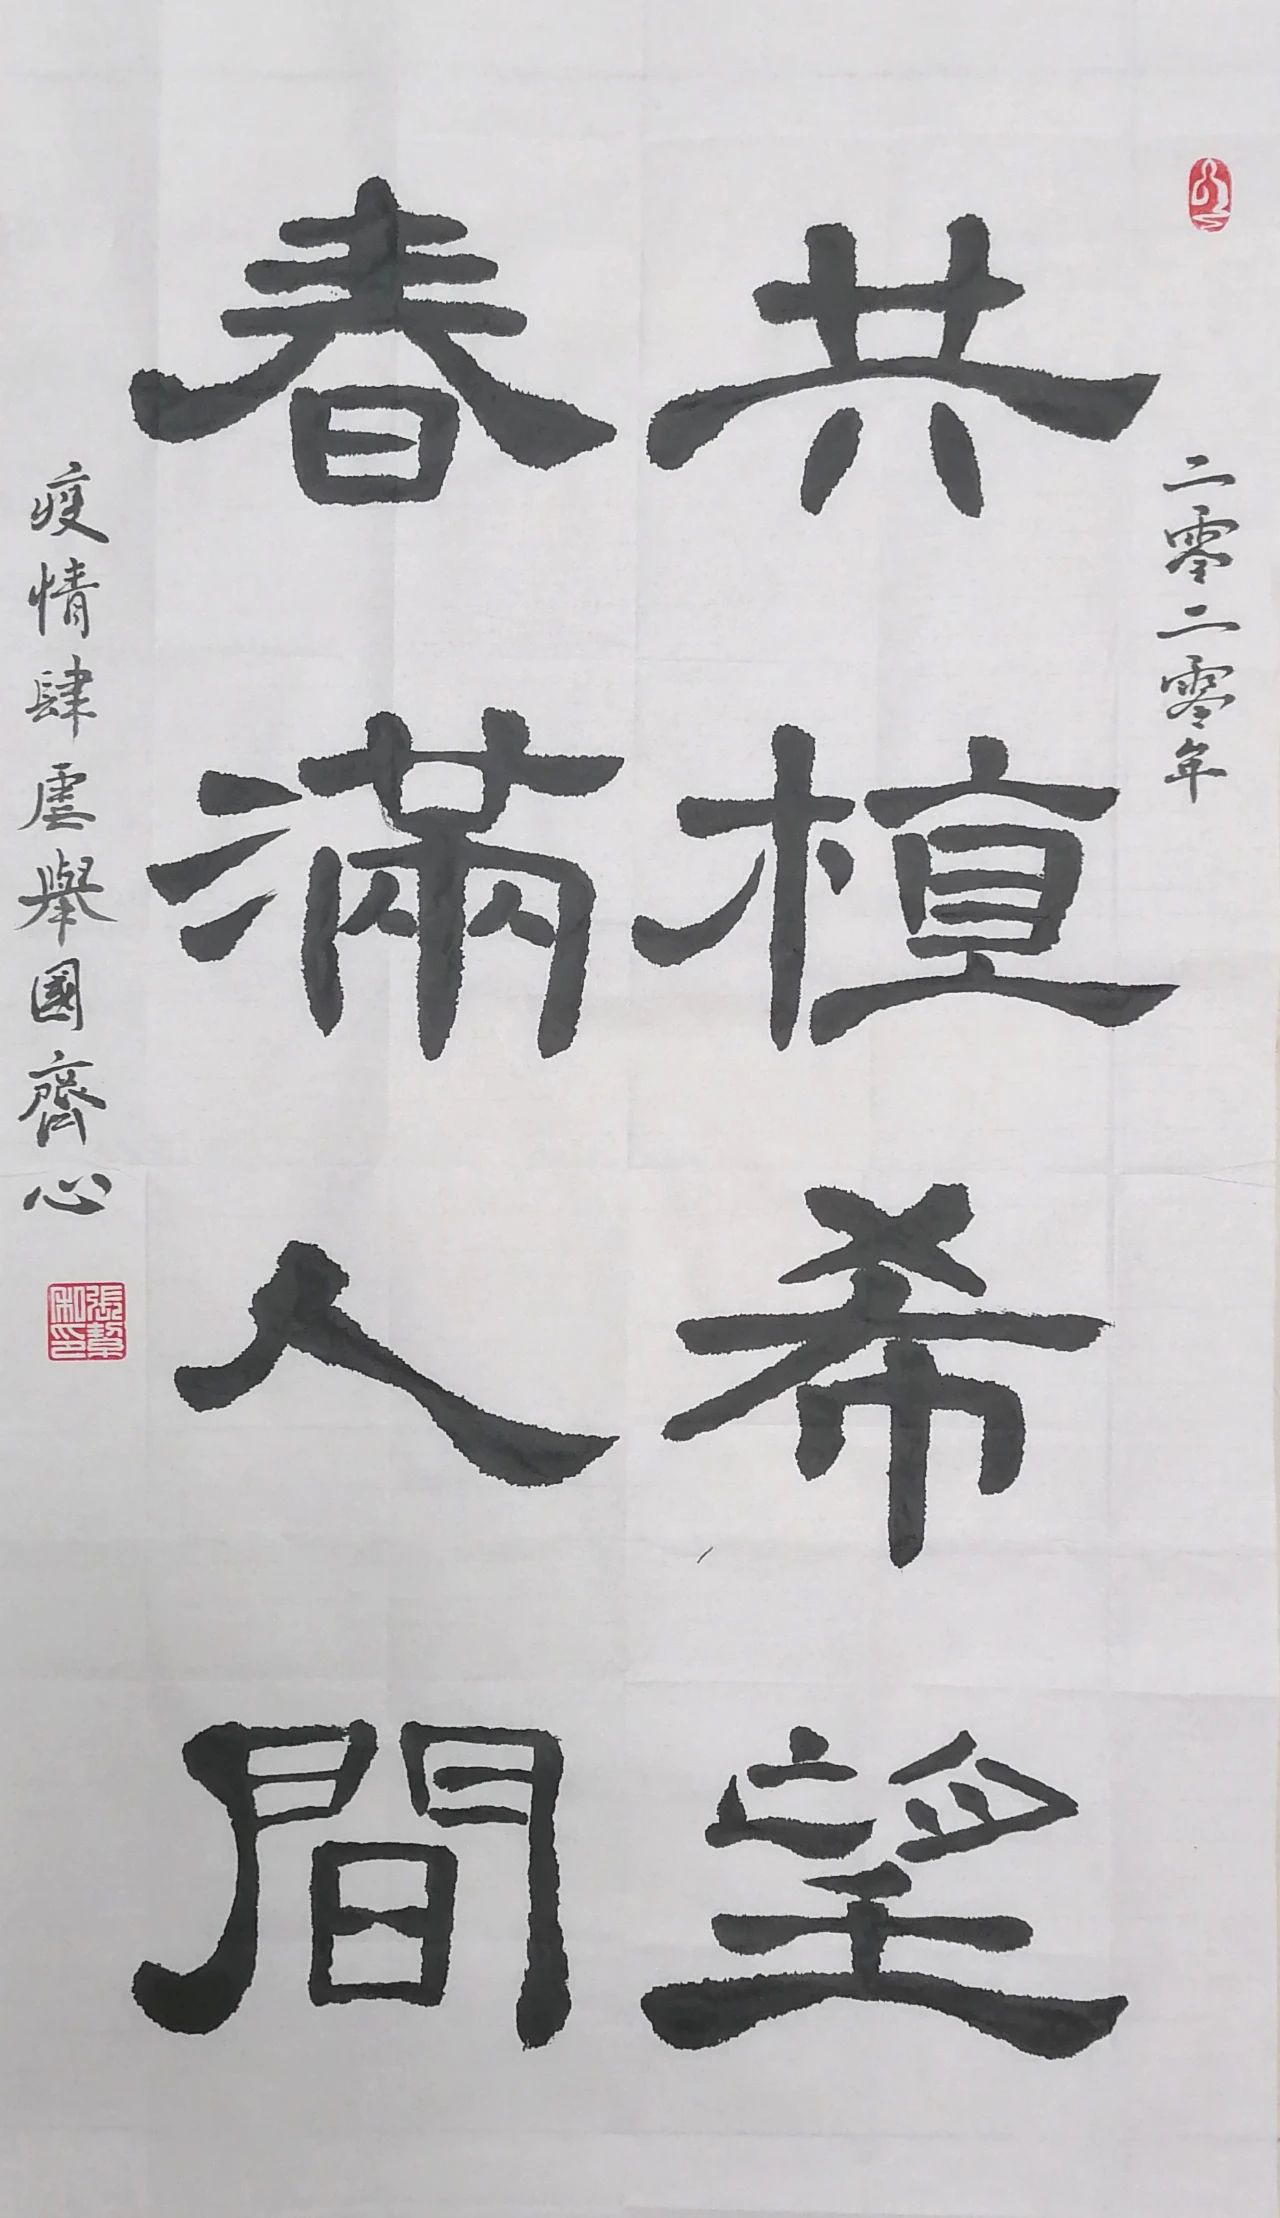 二零二零年
共植希望
春滿人間
疫情肆虐舉國齊心